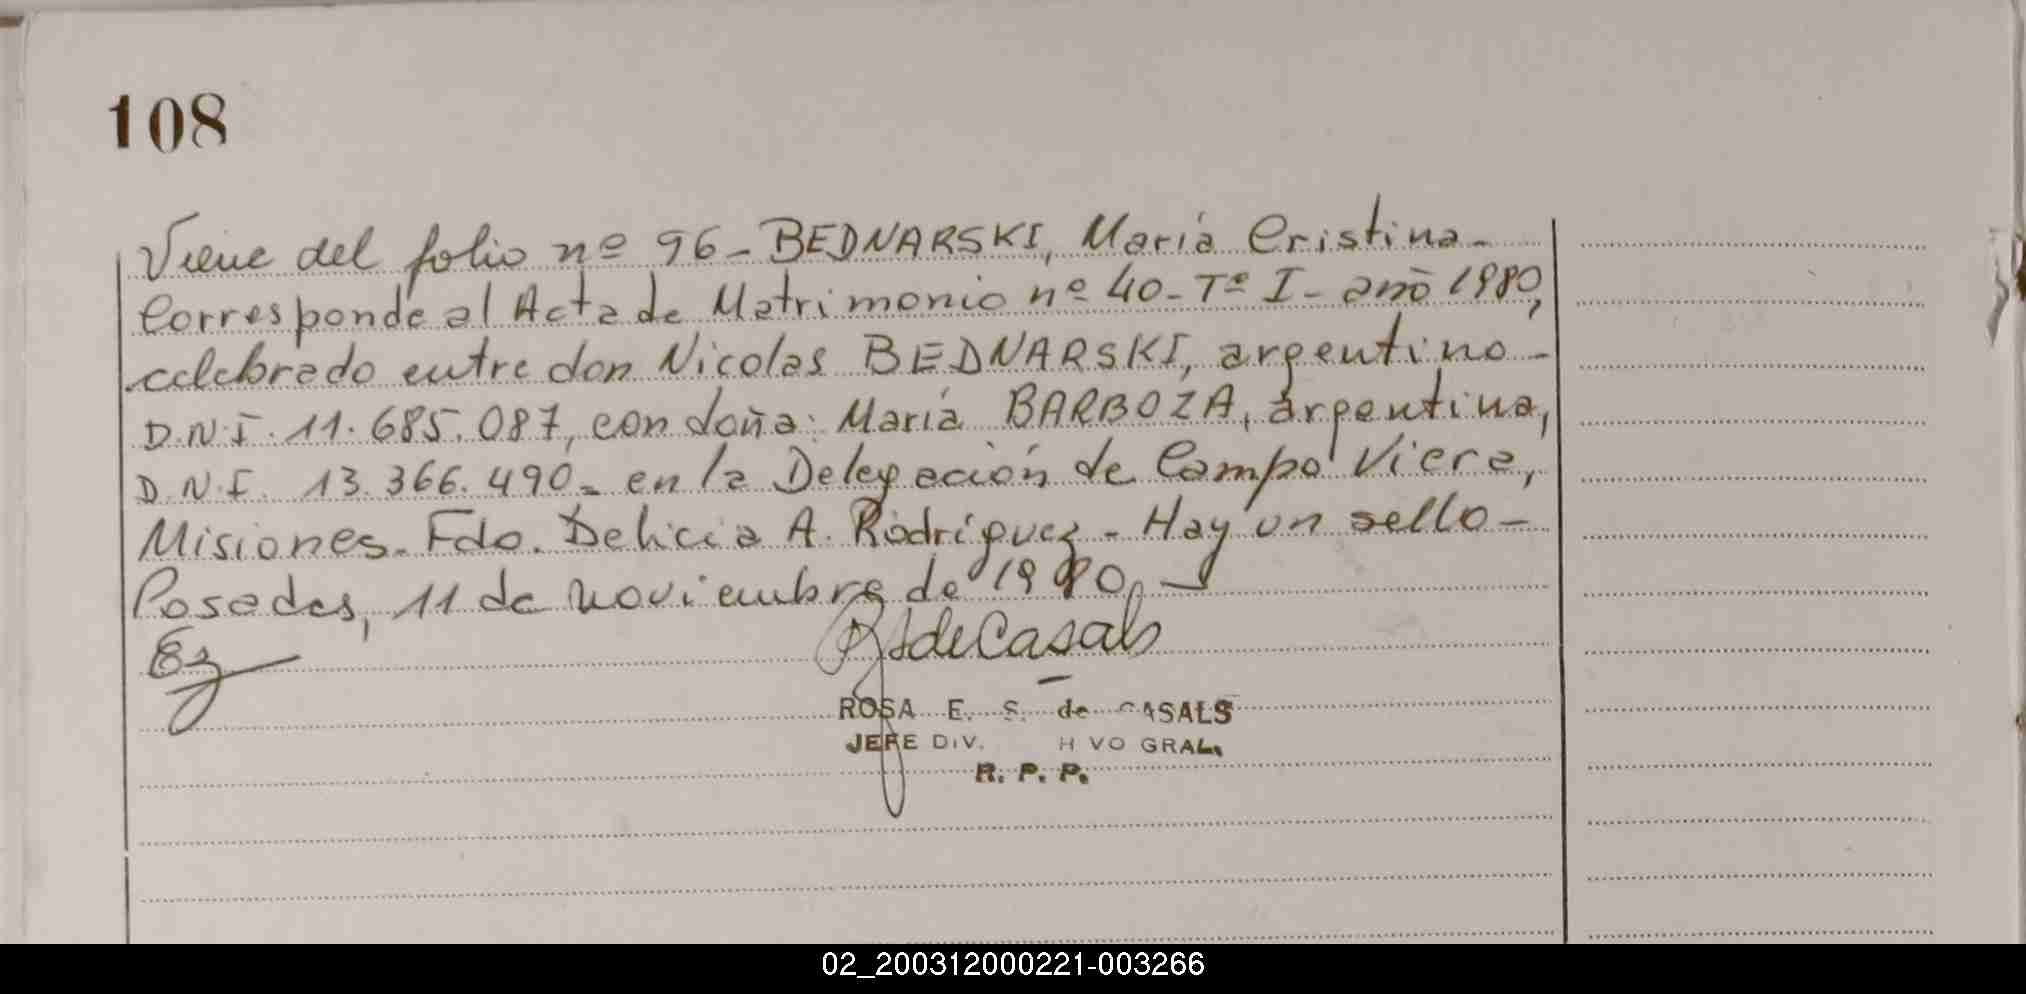 108
Viene del folio nº 96 - BEDNARSKI, María Cristina -
Corresponde al Acta de Matrimonio nº 40 - Tº I - año 1980,
celebrado entre don Nicolas BEDNARSKI, argentino -
D.N.I. 11.685.087, con doña: María BARBOZA, argentina,
D.N.I. 13.366.490 - en la Delegación de Campo Viera,
Misiones. Fdo. Delicia A. Rodríguez - Hay un sello -
Posadas, 11 de noviembre de 1980. -
RSdeCasals
ROSA E. S. de CASALS
JEFE DIV. H VO GRAL.
R. P. P.
02_200312000221-003266